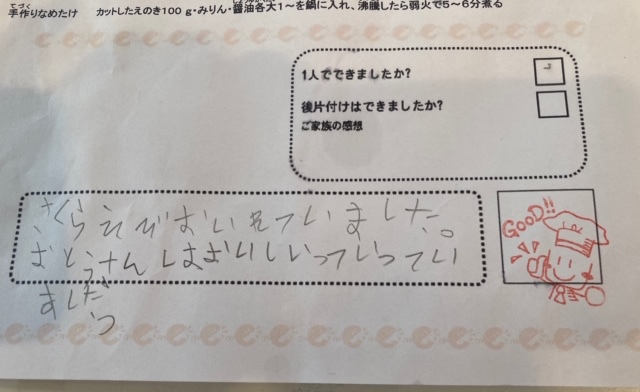 手作りなめたけ　カットしたえのき100ｇ・みりん・醤油各大1～を鍋に入れ、沸騰したら弱火で5～6分煮る
1人でできましたか?
後片付けはできましたか?
ご家族の感想
さくらえびおいれていました。
おとうさんはおいしいっていってい
ました。
GOOD!!